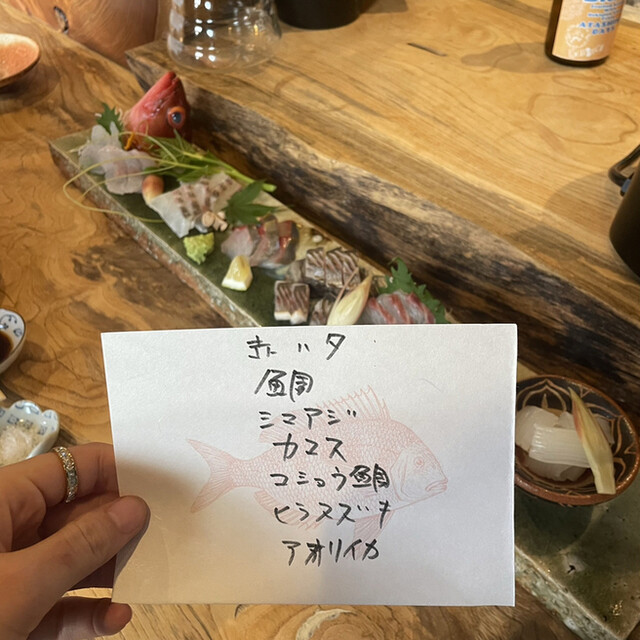 赤ハタ
鯛
シマアジ
カマス
コショウ鯛
ヒラスズキ
アオリイカ